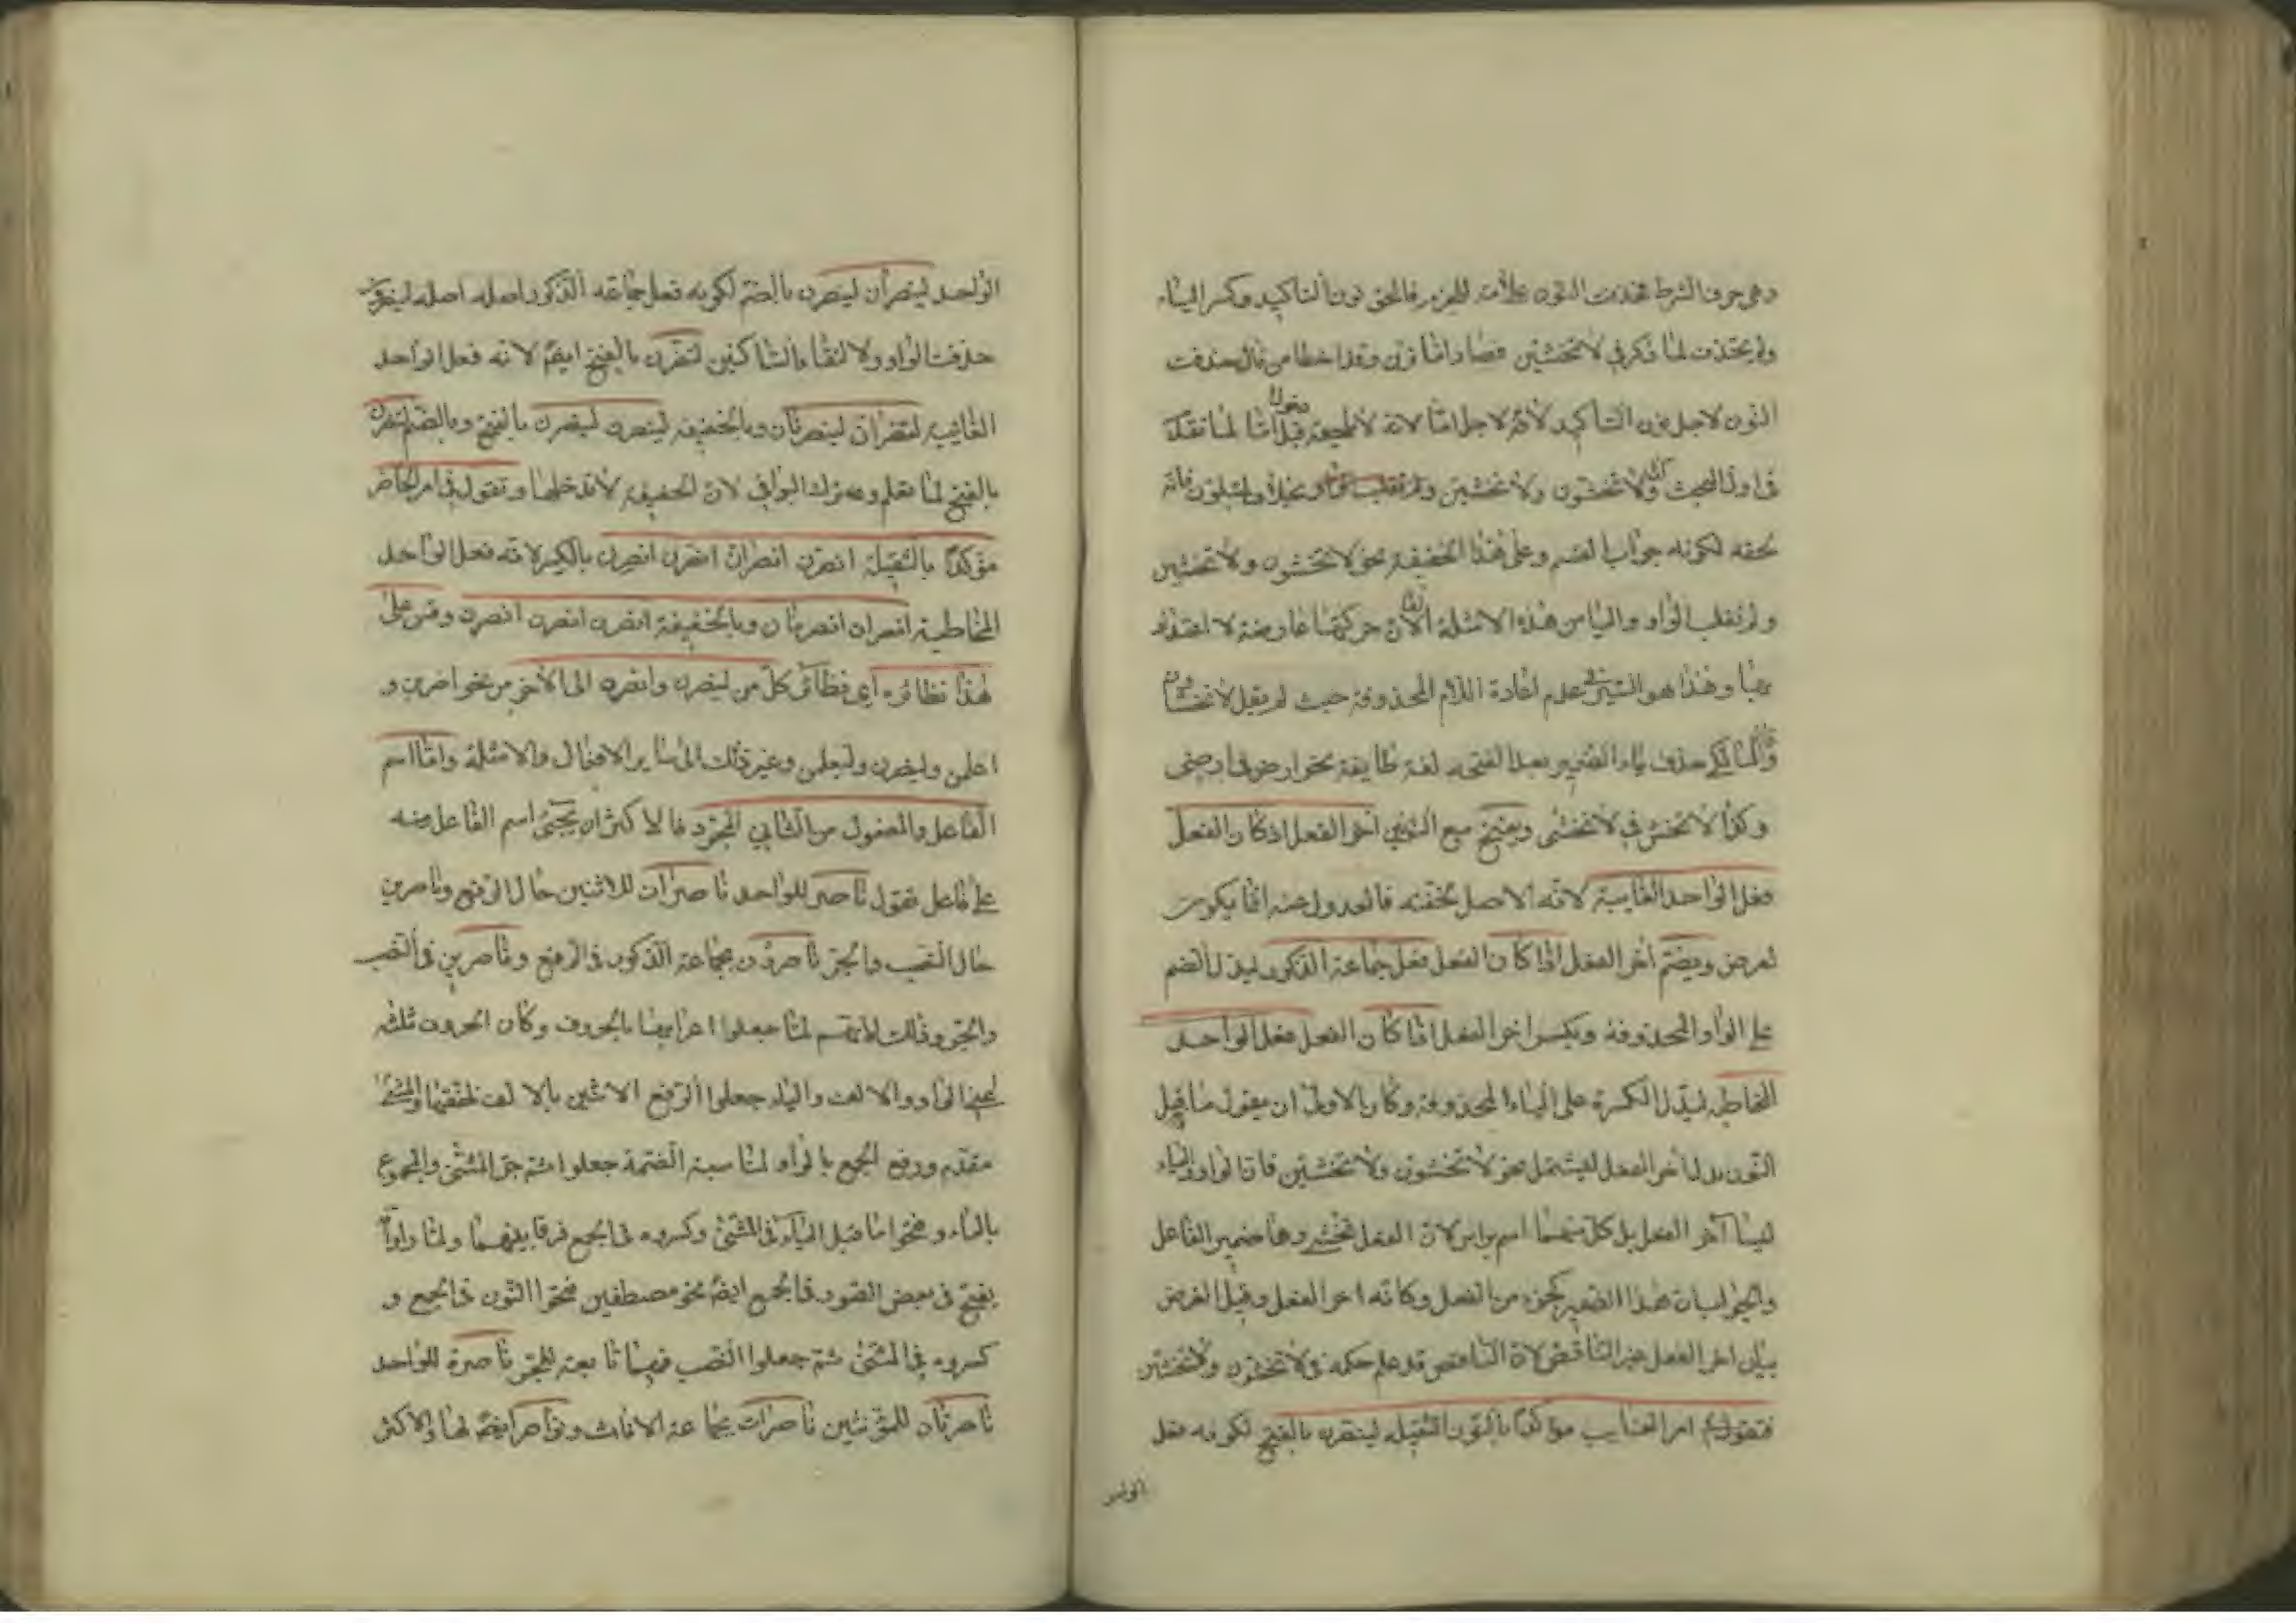 وهي حرف الشرط فحذفت النون علامة للجزم فالحق نون التأكيد وكسر الياء
ولم يحذف لما ذكر في لا تخشين فصار اما ترين وقد اخطا من قال حذفت
النون لاجل نون التأكيد لانه لا يلحقه قبل دخول اما لما تقدم
في اول البحث لا تخشون ولا تخشين
لكونه جواب القسم وعلى هذا الخفيفة نحو لا تخشون ولا تخشين
ولم تقلب الواو والياء من هذه الامثلة الفا لان حركتهما عارضة لا اعتداد
بها وهذا هو السر في عدم اعادة اللام المحذوفة حيث لم يقل لا تخشاون
حذف ياء الضمير بعد الفتحة لغة طايفة نحو ارضن في ارضين
وكذا لا تخشن في لا تخشين ويفتح مع النونين آخر الفعل اذا كان الفعل
فعل الواحد الغايبة لانه الاصل لخفته فالعدول عنه انما يكون
لغرض ويضم آخر الفعل اذا كان الفعل فعل جماعة الذكور ليدل الضم
على الواو المحذوفة ويكسر اخر الفعل اذا كان الفعل فعل الواحد
المخاطبة ليدل الكسرة على الياء المحذوفة وكان الاولى ان يقول ما قبل
النون بدل اخر الفعل ليشتمل نحو لا تخشون ولا تخشين فان الواو والياء
ليسا آخر الفعل بل كل منهما اسم براسه لان الفعل تخشى وهما ضمير الفاعل
والجواب ان هذا الضمير كجزء من الفعل وكانه اخر الفعل وقيل الغرض
بيان اخر الفعل غير الناقص لان الناقص قد علم حكمه في لا تخشون ولا تخشين
فتقول في امر الغايب مؤكدا بالنون الثقيلة لينصرن بالفتح لكونه فعل
الواحد
الواحد لينصران لينصرن بالضم لكونه فعل جماعة الذكور اصله لينصرون
حذفت الواو لالتقاء الساكنين لتنصرن بالفتح ايضا لانه فعل الواحد
الغايبة لتنصران لينصرنان وبالخفيفة لينصرن لينصرن بالفتح وبالضم لتنصرن
بالفتح لما تقدم وترك البواقي لان الخفيفة لا تدخلها وتقول في امر الحاضر
مؤكدا بالثقيلة انصرن انصران انصرن انصرن بالكسر لانه فعل الواحد
المخاطبة انصران انصرنان وبالخفيفة انصرن انصرن انصرن وقس على
هذا نظائره اي نظائر كل من لينصرن وانصرن الى الآخر من نحو اضربن و
اعلمن وليضربن وليعلمن وغير ذلك الى سائر الافعال والامثلة واما اسم
الفاعل والمفعول من الثلاثي المجرد فالاكثر ان يجيء اسم الفاعل منه
على فاعل تقول ناصر للواحد ناصران للاثنين حال الرفع وناصرين
حال النصب والجر ناصرون لجماعة الذكور في الرفع وناصرين في النصب
والجر وذلك لانهم لما جعلوا اعرابهما بالحروف وكان الحروف ثلثة
يعني الواو والالف والياء جعلوا رفع الاثنين بالالف لخفتها والمثنى
مقدم ورفع الجمع بالواو لمناسبة الضمة جعلوا ثم جر المثنى والمجموع
بالياء وفتحوا ما قبل الياء في المثنى وكسروه في الجمع فرقا بينهما ولما راوا
يفتح في بعض الصور في الجمع ايضا نحو مصطفين فتحوا النون في الجمع و
كسروه في المثنى ثم جعلوا النصب فيهما تابعة للجر ناصرة للواحد
ناصرتان للمؤنثين ناصرات لجماعة الاناث ونواصر ايضا لها والاكثر